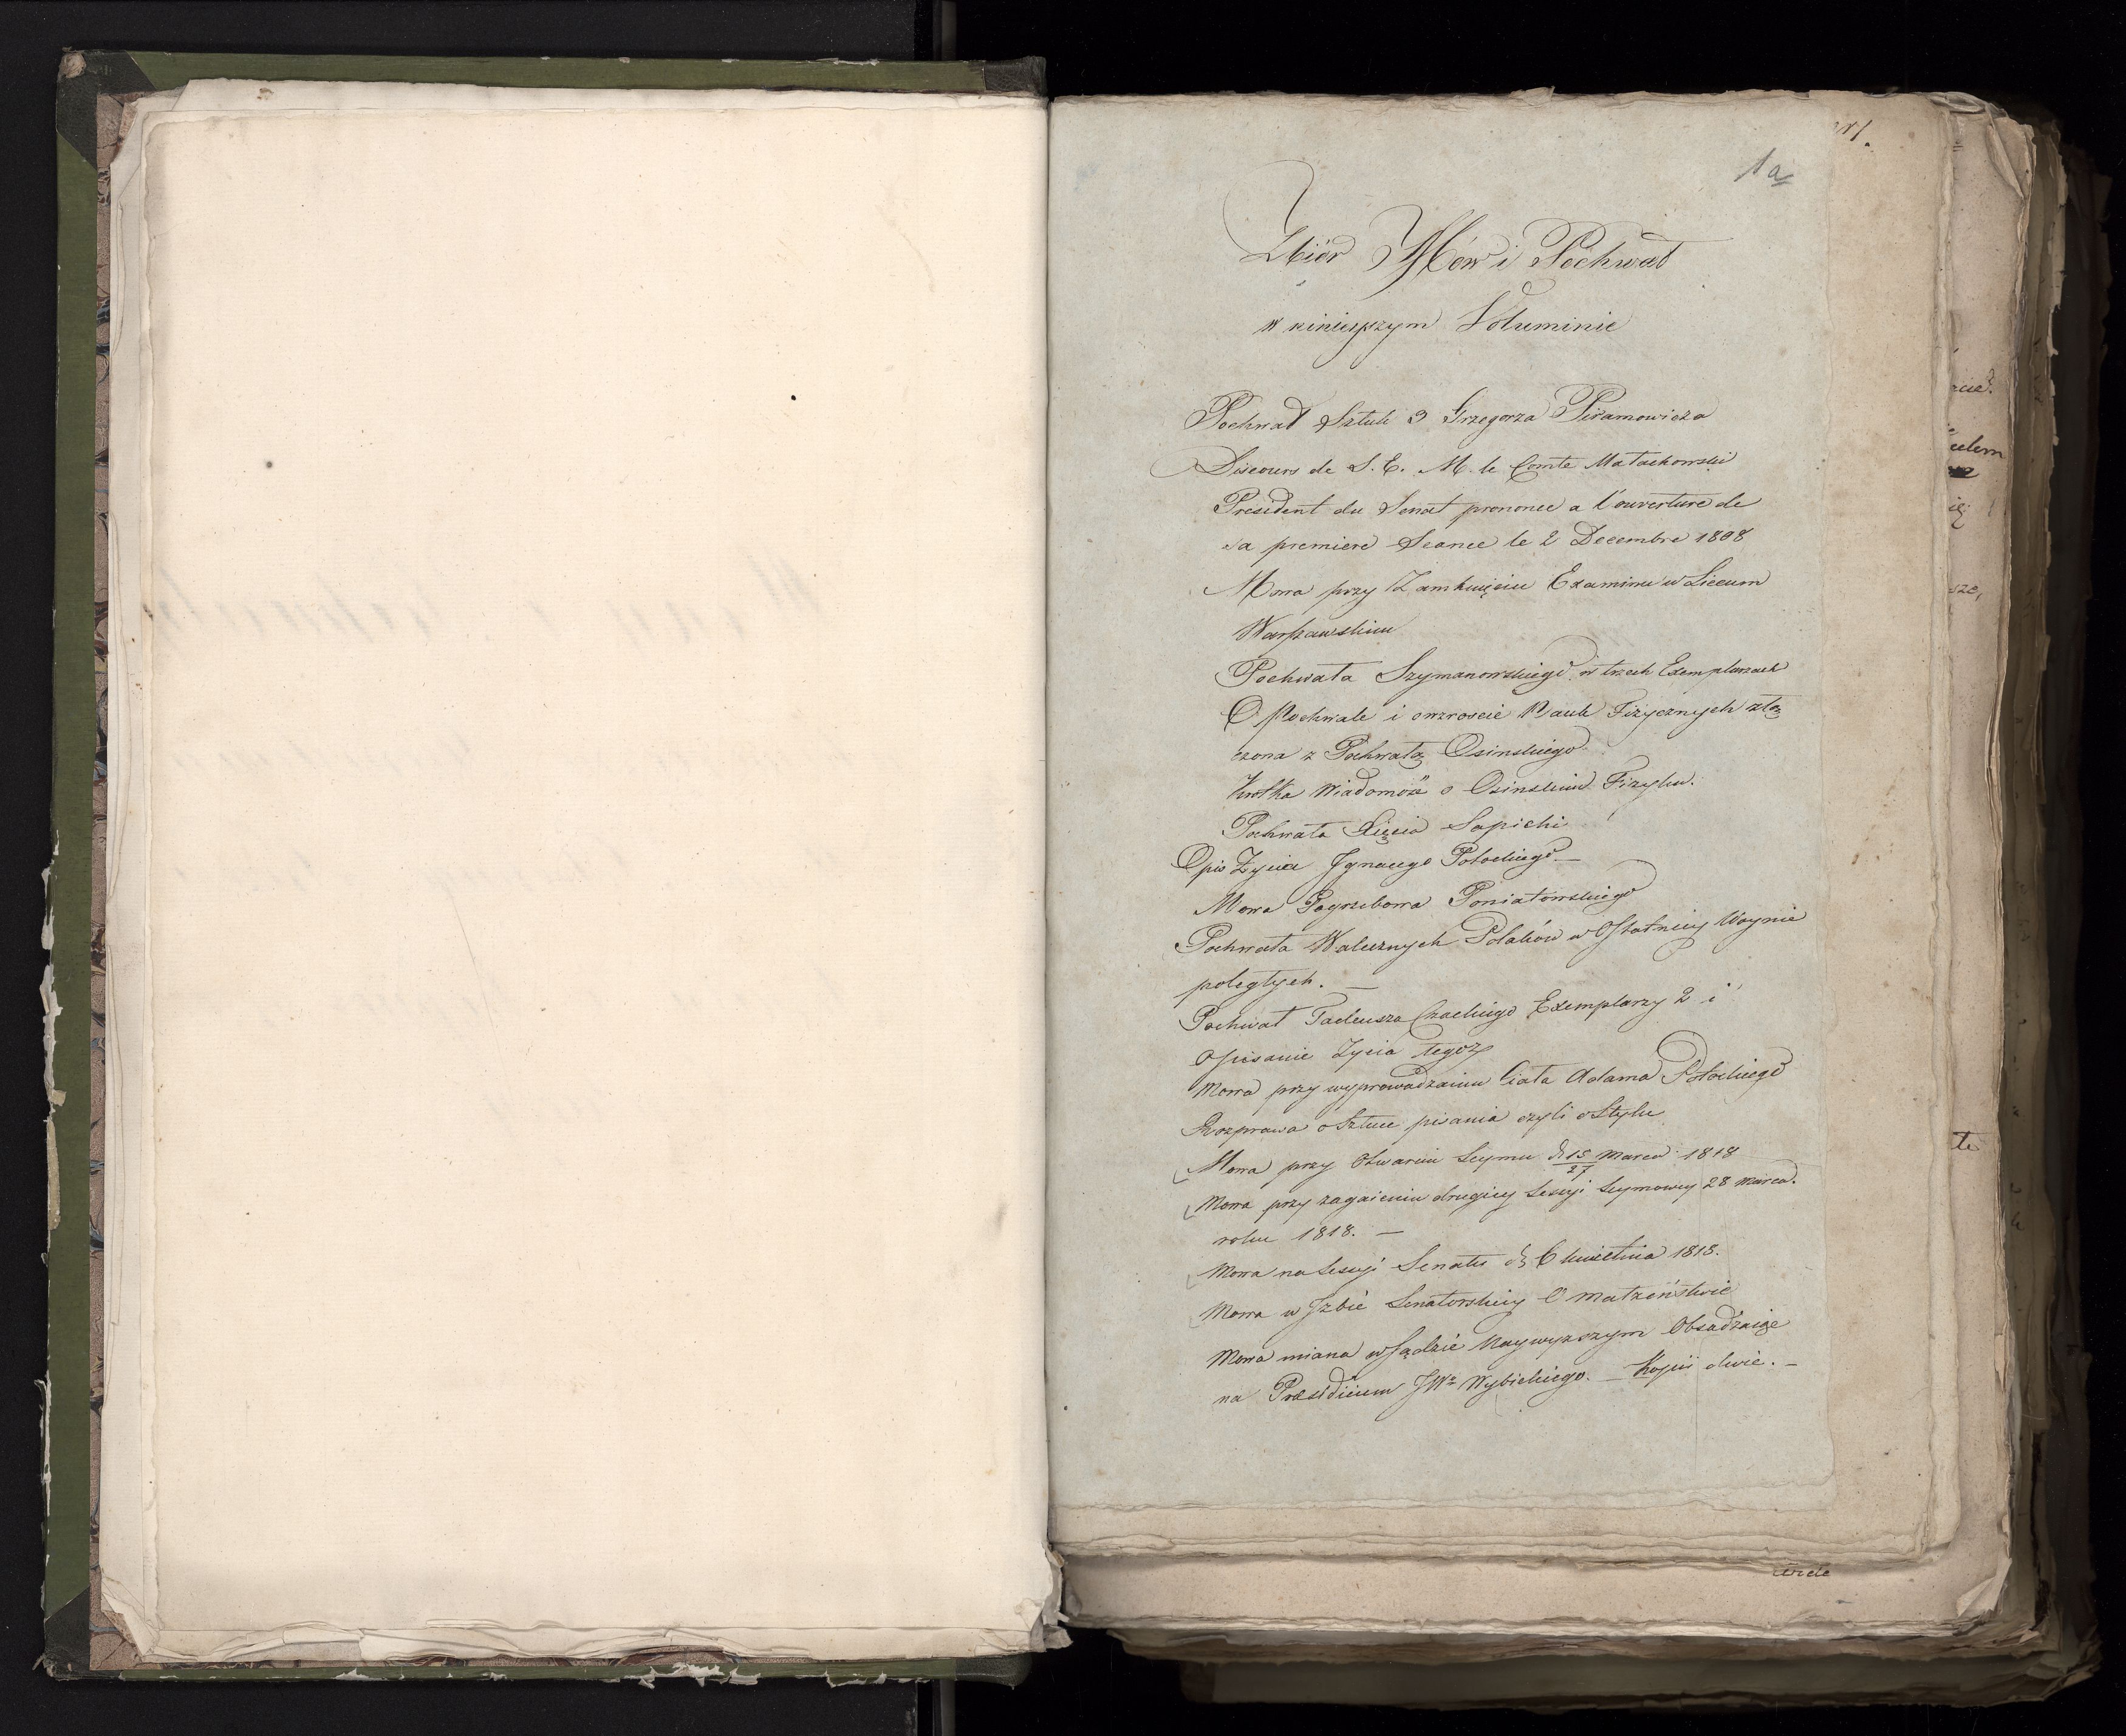 1a
Zbiór Mów i Pochwał
w ninieyszym Voluminie
Pochwał Sztuk 3 Grzegorza Piramowicza
Discours de S. E. M. le Comte Małachowski
President du Senat prononce a l'ouverture de
sa premiere Seance le 2 Decembre 1808
Mowa przy Zamknięciu Examinu w Liceum
Warszawskim
Pochwała Szymanowskiego w trzech Exemplarzach
O Pochwale i owzroscie Nauk Fizycznych złą
czona z Pochwałą Osinskiego
Krotka Wiadomość o Osinskim Fizyku.
Pochwała Xięcia Sapiehi
Opis Życia Jgnacego Potockiego. —
Mowa Pogrzebowa Poniatowskiego
Pochwała Walecznych Polaków w Ostatniey Woynie
poległych. —
Pochwał Tadeusza Czackiego Exemplarzy 2 i
Opisanie Życia tegoż
Mowa przy wyprowadzeniu Ciała Adama Potockiego
Rozprawa o Sztuce pisania czyli o Stylu
Mowa przy Otwarciu Seymu d. 15/27 Marca 1818
Mowa przy zagaieniu drugiey Sessyi Seymowey 28 Marca.
roku 1818. —
Mowa na Sessyi Senatu d. 6 kwietnia 1818.
Mowa w Jzbie Senatorskiey O małżeństwie
Mowa miana w Sądzie Naywyższym Obsadzaiąc
na Præsidium JWo Wybickiego. — Kopii dwie. —